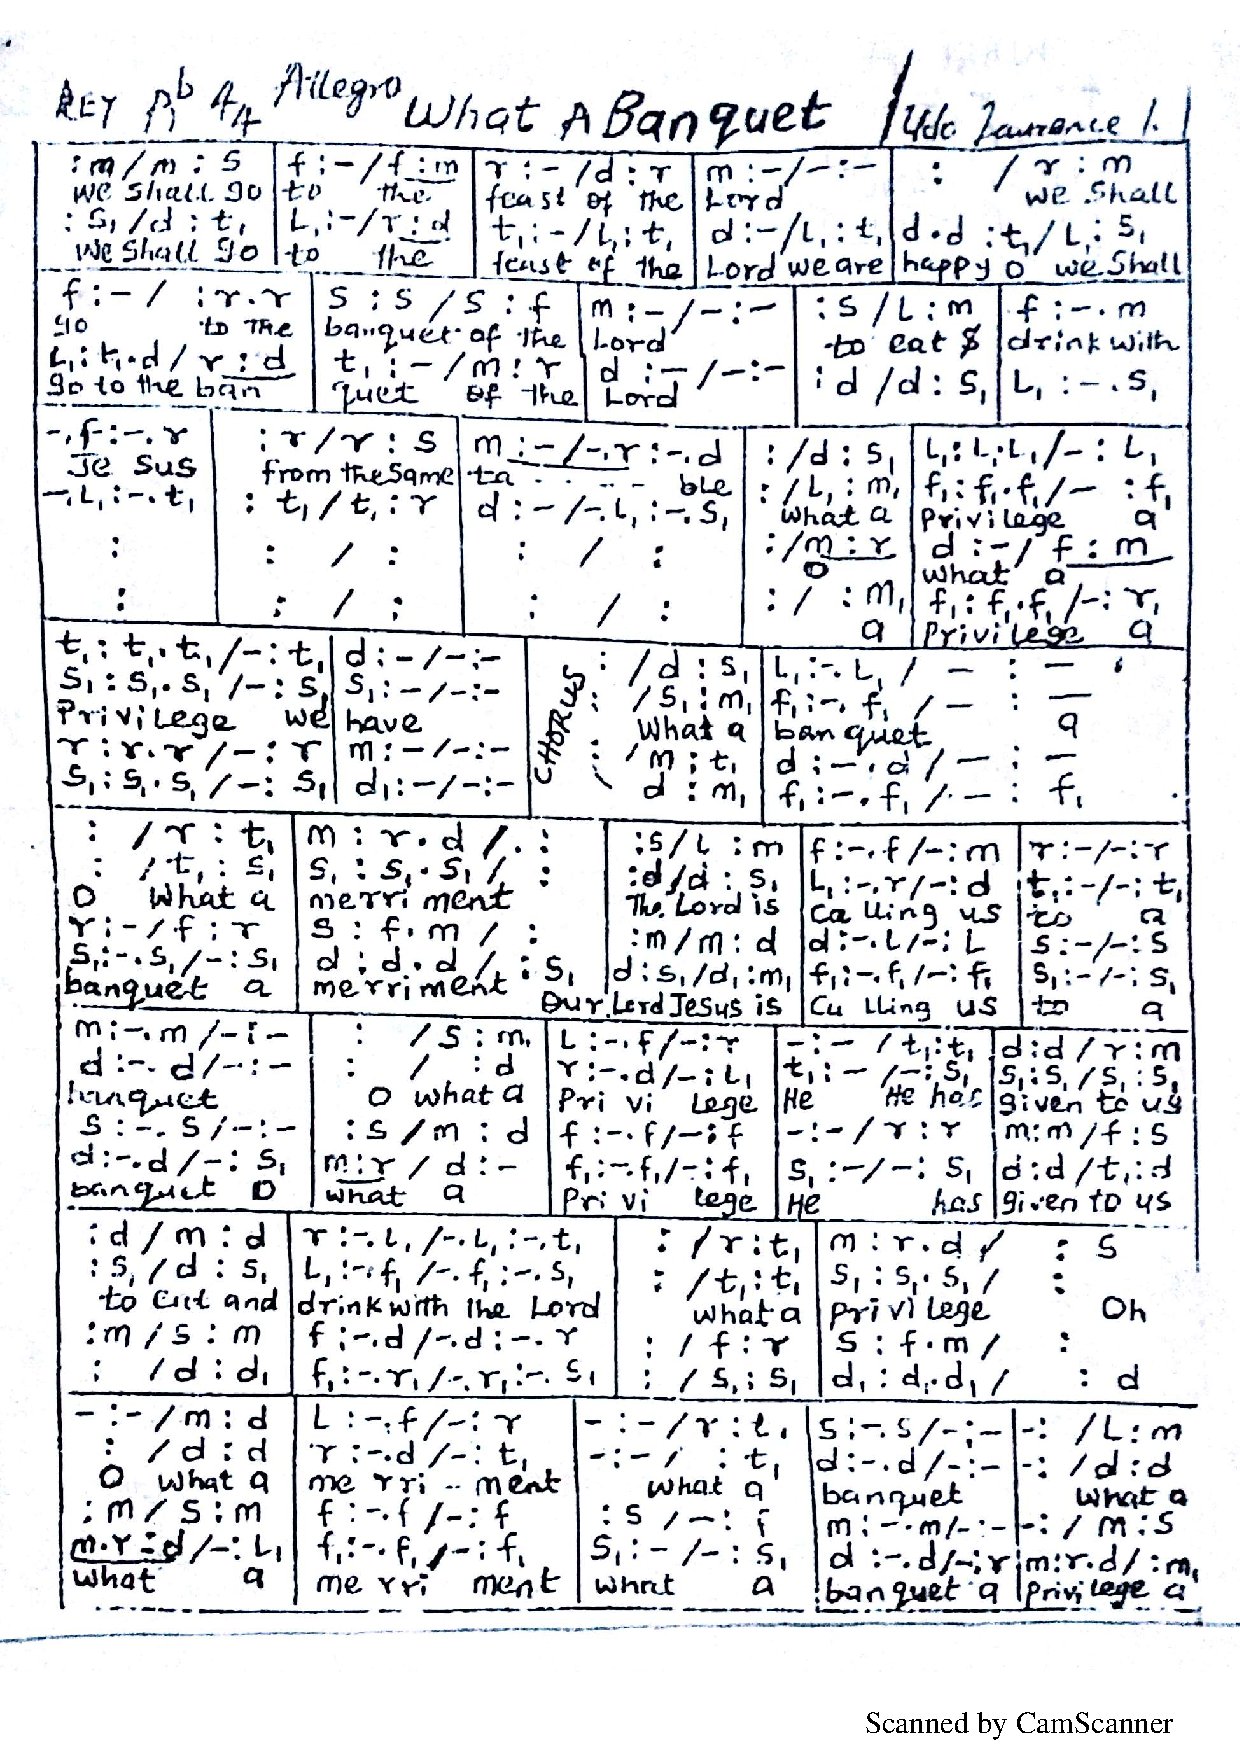 KEY Ab 4/4 Allegro What A Banquet / Udo Lawrence I.
:m / m : s | f : – / f : m | r : – / d : r | m : – / – : – | : / r : m
we shall go | to the | feast of the | Lord | we shall
: s₁ / d : t₁ | L₁ : – / r : d | t₁ : – / L₁ : t₁ | d : – / L₁ : t₁ | d . d : t₁ / L₁ : s₁
we shall go | to the | feast of the | Lord we are | happy O we shall
f : – / : r . r | s : s / s : f | m : – / – : – | : s / L : m | f : – . m
go to the | banquet of the | Lord | to eat $ | drink with
L₁ : t₁ . d / r : d | t₁ : – / m : r | d : – / – : – | : d / d : s₁ | L₁ : – . s₁
go to the ban | quet of the | Lord
– . f : – . r | : r / r : s | m : – / – . r : – . d | : / d : s₁ | L₁ : L₁ . L₁ / – : L₁
Je sus | from the same | ta . . . . . ble | : / L₁ : m₁ | f₁ : f₁ . f₁ / – : f₁
– . L₁ : – . t₁ | : t₁ / t₁ : r | d : – / – . L₁ : – . s₁ | what a | Privilege a
: | : / : | : / : | : / m : r | d : – / f : m
O | what a
: | : / : | : / : | : / : m₁ | f₁ : f₁ . f₁ / – : r₁
a | Privilege a
t₁ : t₁ . t₁ / – : t₁ | d : – / – : – | CHORUS : / d : s₁ | L₁ : – . L₁ / – : –
s₁ : s₁ . s₁ / – : s₁ | s₁ : – / – : – | : / s₁ : m₁ | f₁ : – . f₁ / – : –
Privilege we | have | What a | banquet a
r : r . r / – : r | m : – / – : – | : / m : t₁ | d : – . d / – : –
s₁ : s₁ . s₁ / – : s₁ | d₁ : – / – : – | d : m₁ | f₁ : – . f₁ / – : f₁
: / r : t₁ | m : r . d / . : | : s / L : m | f : – . f / – : m | r : – / – : r
: / t₁ : s₁ | s₁ : s₁ . s₁ / : | : d / d : s₁ | L₁ : – . r / – : d | t₁ : – / – : t₁
O What a | merri ment | The Lord is | Ca lling us | to a
r : – / f : r | s : f . m / : | : m / m : d | d : – . L / – : L | s : – / – : s
s₁ : – . s₁ / – : s₁ | d : d . d / : s₁ | d : s₁ / d₁ : m₁ | f₁ : – . f₁ / – : f₁ | s₁ : – / – : s₁
banquet a | merriment Our | Lord Jesus is | Ca lling us | to a
m : – . m / – : – | : / s : m₁ | L : – . f / – : r | – : – / t₁ : t₁ | d : d / r : m
d : – . d / – : – | : / : d | r : – . d / – : L₁ | t₁ : – / – : s₁ | s₁ : s₁ / s₁ : s₁
banquet | O what a | Pri vi lege | He He has | given to us
s : – . s / – : – | : s / m : d | f : – . f / – : f | – : – / r : r | m : m / f : s
d : – . d / – : s₁ | m : r / d : – | f₁ : – . f₁ / – : f₁ | s₁ : – / – : s₁ | d : d / t₁ : d
banquet O | what a | Pri vi lege | He has | given to us
: d / m : d | r : – . L₁ / – . L₁ : – . t₁ | : / r : t₁ | m : r . d / : s
: s₁ / d : s₁ | L₁ : – . f₁ / – . f₁ : – . s₁ | : / t₁ : t₁ | s₁ : s₁ . s₁ / :
to eat and | drink with the Lord | what a | privilege Oh
: m / s : m | f : – . d / – . d : – . r | : / f : r | s : f . m / :
: / d : d₁ | f₁ : – . r₁ / – . r₁ : – . s₁ | : / s₁ : s₁ | d₁ : d₁ . d₁ / : d
– : – / m : d | L : – . f / – : r | – : – / r : t₁ | s : – . s / – : – | – : / L : m
: / d : d | r : – . d / – : t₁ | – : – / : t₁ | d : – . d / – : – | – : / d : d
O what a | me rri .. ment | what a | banquet | What a
: m / s : m | f : – . f / – : f | : s / – : f | m : – . m / – : – | – : / m : s
m . r = d / – : L₁ | f₁ : – . f₁ / – : f₁ | s₁ : – / – : s₁ | d : – . d / – : r | m : r . d / : m₁
what a | me rri ment | what a | banquet a | privilege a
Scanned by CamScanner